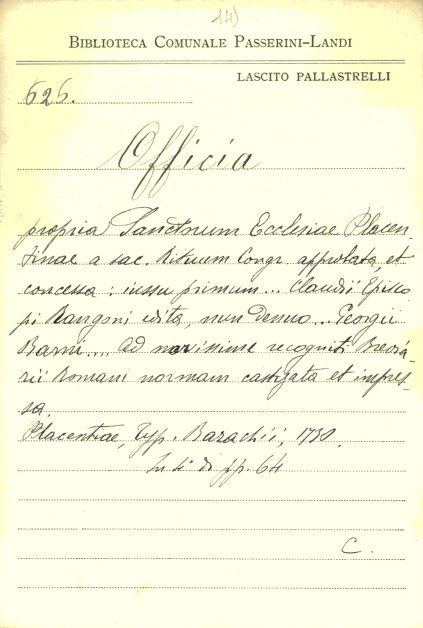 14)
BIBLIOTECA COMUNALE PASSERINI-LANDI
LASCITO PALLASTRELLI
625.
Officia
propria Sanctorum Ecclesiae Placen-
tinae a sac. Rituum Congr approbata, et
concessa: iussu primum... Claudii Episco
pi Rangoni edita, nun denuo... Georgii
Barni.... ad novissime recogniti Brevia-
rii Romani normam castigata et impres-
sa.
Placentiae, Typ. Barachii, 1730.
In 4° di pp. 64
C.